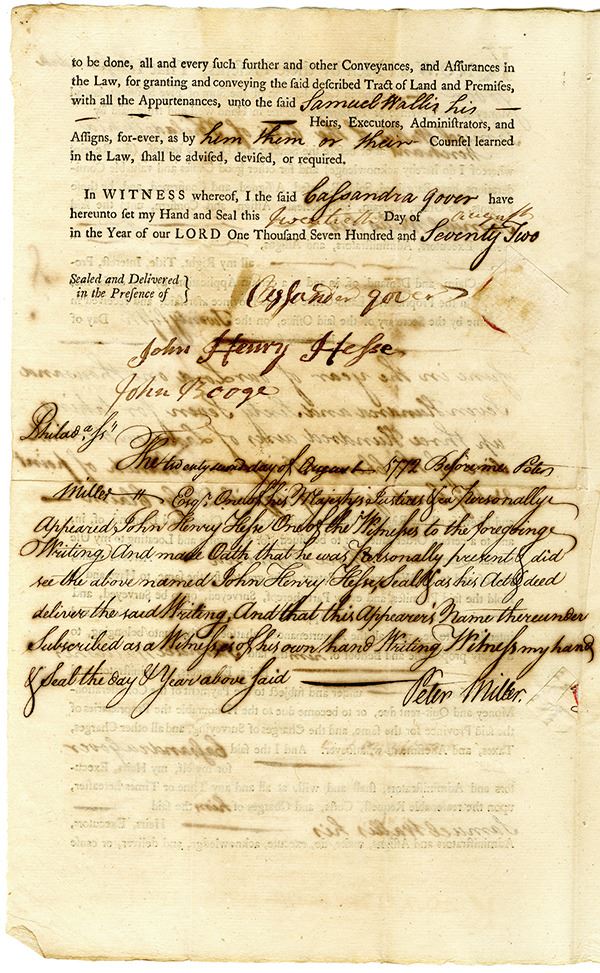 to be done, all and every such further and other Conveyances, and Assurances in
the Law, for granting and conveying the said described Tract of Land and Premises,
with all the Appurtenances, unto the said Samuel Wallis his
Heirs, Executors, Administrators, and
Assigns, for-ever, as by him them or their Counsel learned
in the Law, shall be advised, devised, or required.
In WITNESS whereof, I the said Cassandra Gover have
hereunto set my Hand and Seal this Twentieth Day of August
in the Year of our LORD One Thousand Seven Hundred and Seventy Two
Sealed and Delivered
in the Presence of
Cassander gover
John Henry Hesse
John Rooge
Philada. ss
The twenty second day of August 1772 Before me Peter
Miller Esqr. One of his Majestys Justices &ca Personally
Appeared John Henry Hesse One of the Witnesses to the foregoing
Writing And made Oath that he was Personally present & did
see the above named John Henry Hesse, Seal & as his Act & deed
deliver the said Writing, And that this Appearer's Name thereunder
Subscribed as a Witness is of his own hand Writing Witness my hand
& Seal the day & Year above said
Peter Miller.